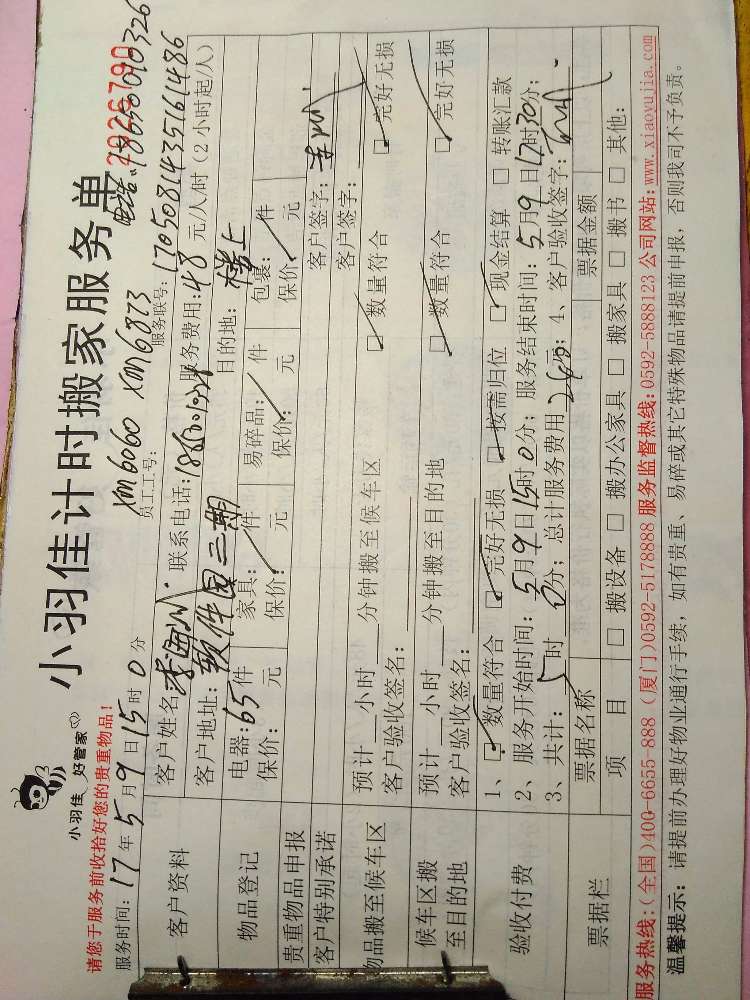 小羽佳 好管家
小羽佳计时搬家服务单
2026790
请您于服务前收拾好您的贵重物品!
员工工号: xm6060 xm6873 电话:18650010326
服务时间:17年5月9日15时0分 服务联号:1705081435161486
客户资料
客户姓名: 联系电话: 服务费用:48元/人/时(2小时起/人)
客户地址:软件园二期 目的地:楼上
物品登记
电器:65件 家具: 件 易碎品: 件 包裹: 件
保价: 元 保价: 元 保价: 元 保价: 元
贵重物品申报 客户签字:
客户特别承诺 客户签字:
物品搬至候车区
预计 小时 分钟搬至候车区 数量符合 完好无损
客户验收签名:
候车区搬至目的地
预计 小时 分钟搬至目的地 数量符合 完好无损
客户验收签名:
验收付费
1、 数量符合 完好无损 按需归位 现金结算 转账汇款
2、服务开始时间:5月9日15时0分; 服务结束时间:5月9日17时30分;
3、共计:5时0分; 总计服务费用 元; 4、客户验收签字:
票据栏
票据名称 票据金额
项 目 搬设备 搬办公家具 搬家具 搬书 其他:
服务热线:(全国)400-6655-888 (厦门)0592-5178888 服务监督热线:0592-5888123 公司网站:www.xiaoyujia.com
温馨提示: 请提前办理好物业通行手续, 如有贵重、易碎或其它特殊物品请提前申报, 否则我司不予负责。